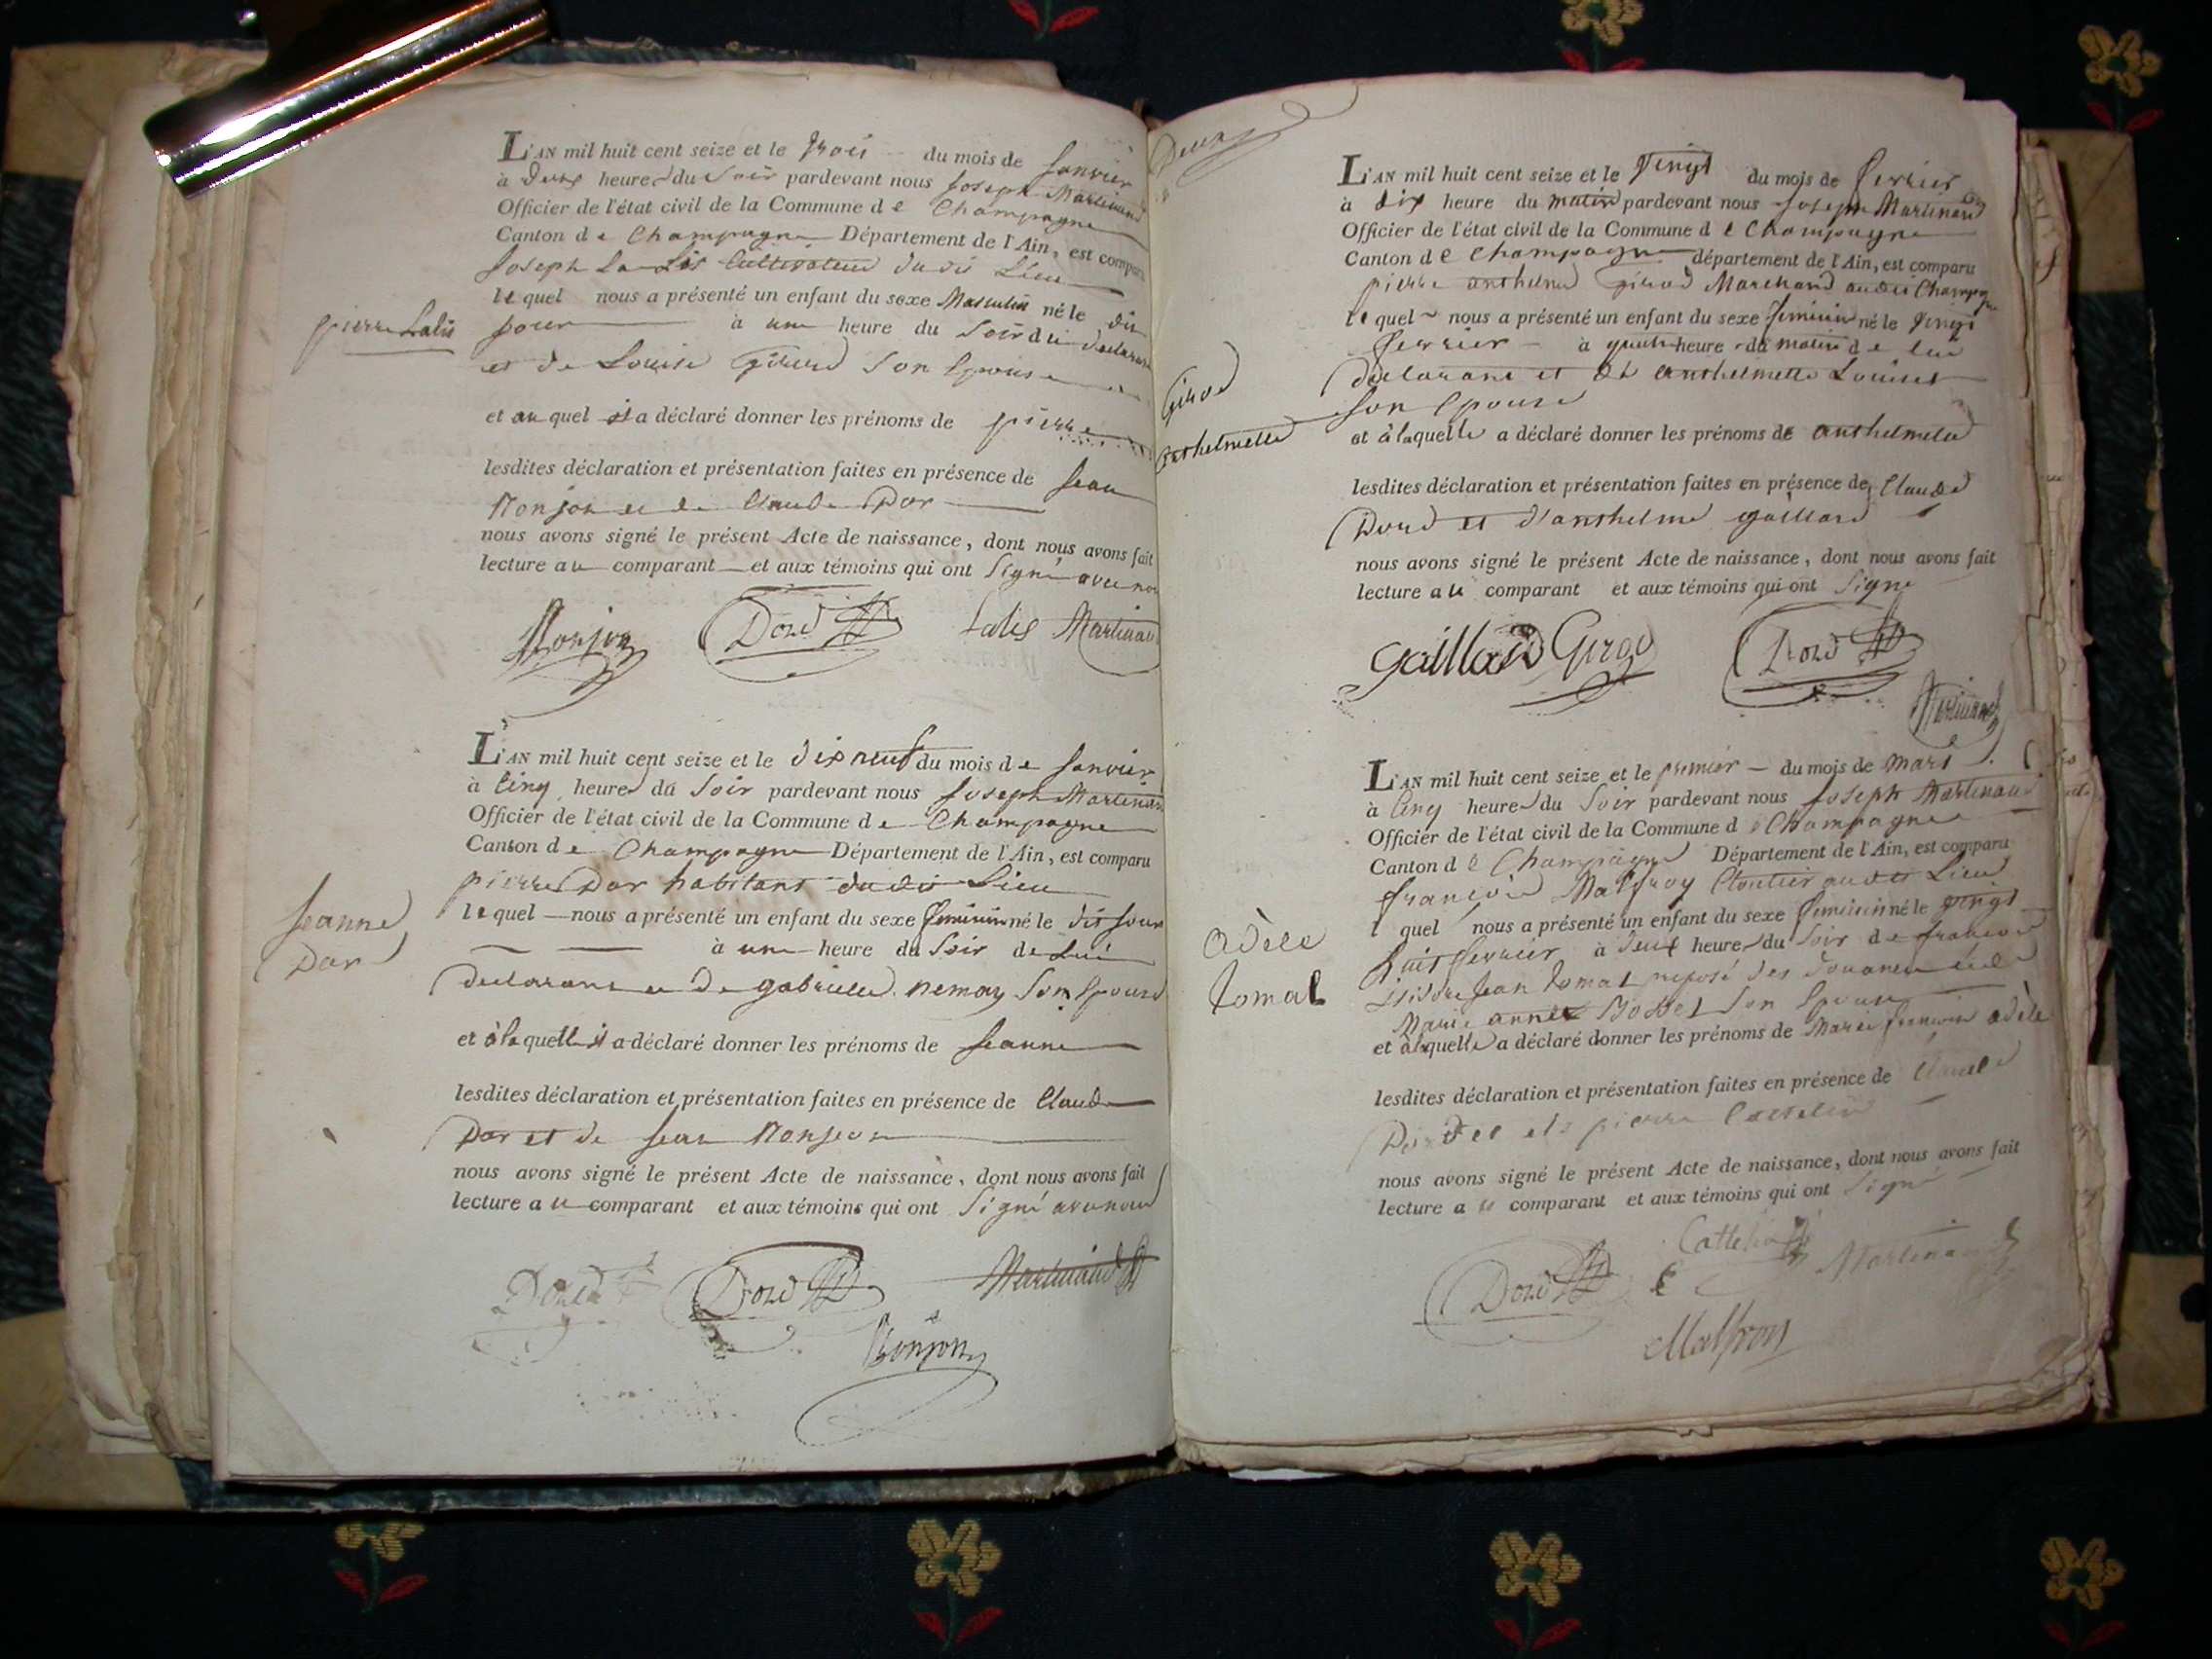 L'AN mil huit cent seize et le trois du mois de janvier
à deux heures du soir pardevant nous joseph Martinand
Officier de l'état civil de la Commune de Champagne
Canton de Champagne Département de l'Ain, est comparu
joseph Lalis Cultivateur dudit Lieu
lequel nous a présenté un enfant du sexe Masculin né le dit
jour à une heure du soir de declarant
et de Louise girerd son Epouse
pierre Lalis
et auquel il a déclaré donner les prénoms de pierre
lesdites déclaration et présentation faites en présence de jean
Monjon et de Claude Dor
nous avons signé le présent Acte de naissance, dont nous avons fait
lecture au comparant et aux témoins qui ont signé avec nous
Monjon Dord Lalis Martinand
L'AN mil huit cent seize et le dix neuf du mois de janvier
à cinq heures du soir pardevant nous joseph Martinand
Officier de l'état civil de la Commune de Champagne
Canton de Champagne Département de l'Ain, est comparu
pierre Dor habitant dudit Lieu
lequel nous a présenté un enfant du sexe feminin né le dit jour
à une heure du soir de Lui
declarant et de gabrielle nemoz son Epouse
jeanne
Dor
et à laquelle il a déclaré donner les prénoms de jeanne
lesdites déclaration et présentation faites en présence de Claude
Dor et de jean Monjeon
nous avons signé le présent Acte de naissance, dont nous avons fait
lecture au comparant et aux témoins qui ont signé avec nous
Dord Dord Martinand
Monjon
Deux
L'AN mil huit cent seize et le vingt du mois de fevrier
à dix heure du matin pardevant nous joseph Martinand
Officier de l'état civil de la Commune de Champagne
Canton de Champagne département de l'Ain, est comparu
pierre anthelme girod Marchand audit Champagne
lequel nous a présenté un enfant du sexe feminin né le vingt
fevrier à quatre heure du matin de lui
declarant et de anthelmette Louise
son Epouse
Girod
anthelmette
et à laquelle a déclaré donner les prénoms de anthelmette
lesdites déclaration et présentation faites en présence de Claude
Dord et d'anthelme gaillard
nous avons signé le présent Acte de naissance, dont nous avons fait
lecture au comparant et aux témoins qui ont signé
gaillard Girod Dord
Martinand
L'AN mil huit cent seize et le premier du mois de mars
à cinq heures du soir pardevant nous joseph Martinand
Officier de l'état civil de la Commune de Champagne
Canton de Champagne Département de l'Ain, est comparu
françois Malfroy Cloutier audit Lieu
lequel nous a présenté un enfant du sexe feminin né le vingt
huit fevrier à deux heures du soir de françois
isidore jean tomal preposé des douanes et de
Marie anne Bossel son Epouse
adèle
tomal
et à laquelle a déclaré donner les prénoms de Marie adèle
lesdites déclaration et présentation faites en présence de Claude
Dord et pierre Cattelin
nous avons signé le présent Acte de naissance, dont nous avons fait
lecture au comparant et aux témoins qui ont signé
Cattelin
Dord Martinand
Malfroy